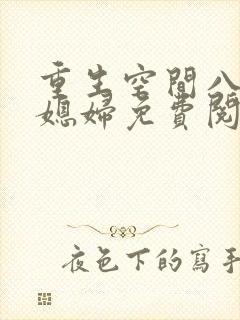 重生空間八
媳婦免費閱
夜色下的寫手